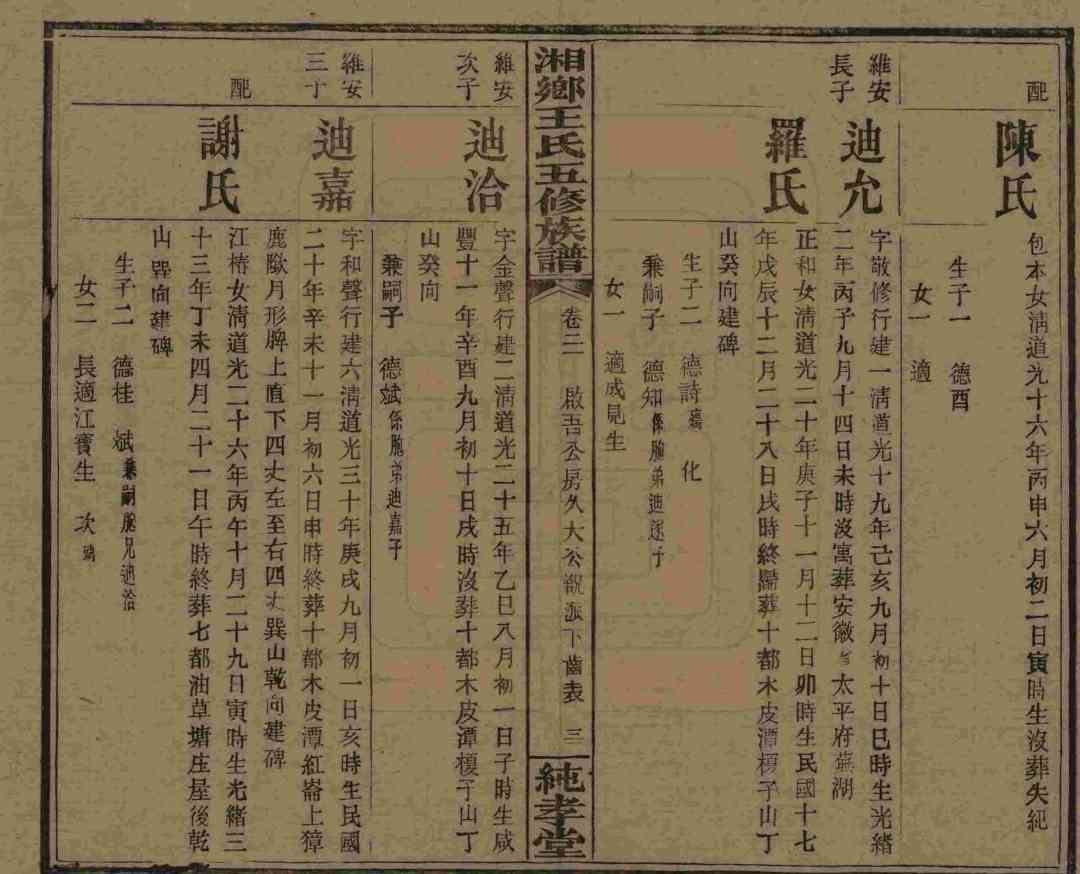 配
陳氏
包本女清道光十六年丙申六月初二日寅時生沒葬失紀
生子一 德酉
女一 適
維安
長子
迪允
字敬修行建一清道光十九年己亥九月初十日巳時生光緒
二年丙子九月十四日未時沒寓葬安徽省太平府蕪湖
羅氏
正和女清道光二十年庚子十一月十二日卯時生民國十七
年戊辰十二月二十八日戌時終歸葬十都木皮潭榎子山丁
山癸向建碑
生子二 德詩 化
兼嗣子 德知係胞弟迪逐子
女一 適成見生
湘鄉王氏五修族譜
卷三 啟吾公房久大公 派下齒表 三
純孝堂
維安
次子
迪洽
字金聲行建二清道光二十五年乙巳八月初一日子時生咸
豐十一年辛酉九月初十日戌時沒葬十都木皮潭榎子山丁
山癸向
兼嗣子 德斌係胞弟迪嘉子
維安
三子
迪嘉
字和聲行建六清道光三十年庚戌九月初一日亥時生民國
二十年辛未十一月初六日申時終葬十都木皮潭紅崙上獐
鹿歐月形牌上直下四丈左至右四丈巽山乾向建碑
配
謝氏
江椿女清道光二十六年丙午十月二十九日寅時生光緒三
十三年丁未四月二十一日午時終葬七都油草塘庄屋後乾
山巽向建碑
生子二 德桂 斌兼嗣胞兄迪洽
女二 長適江寶生 次殤